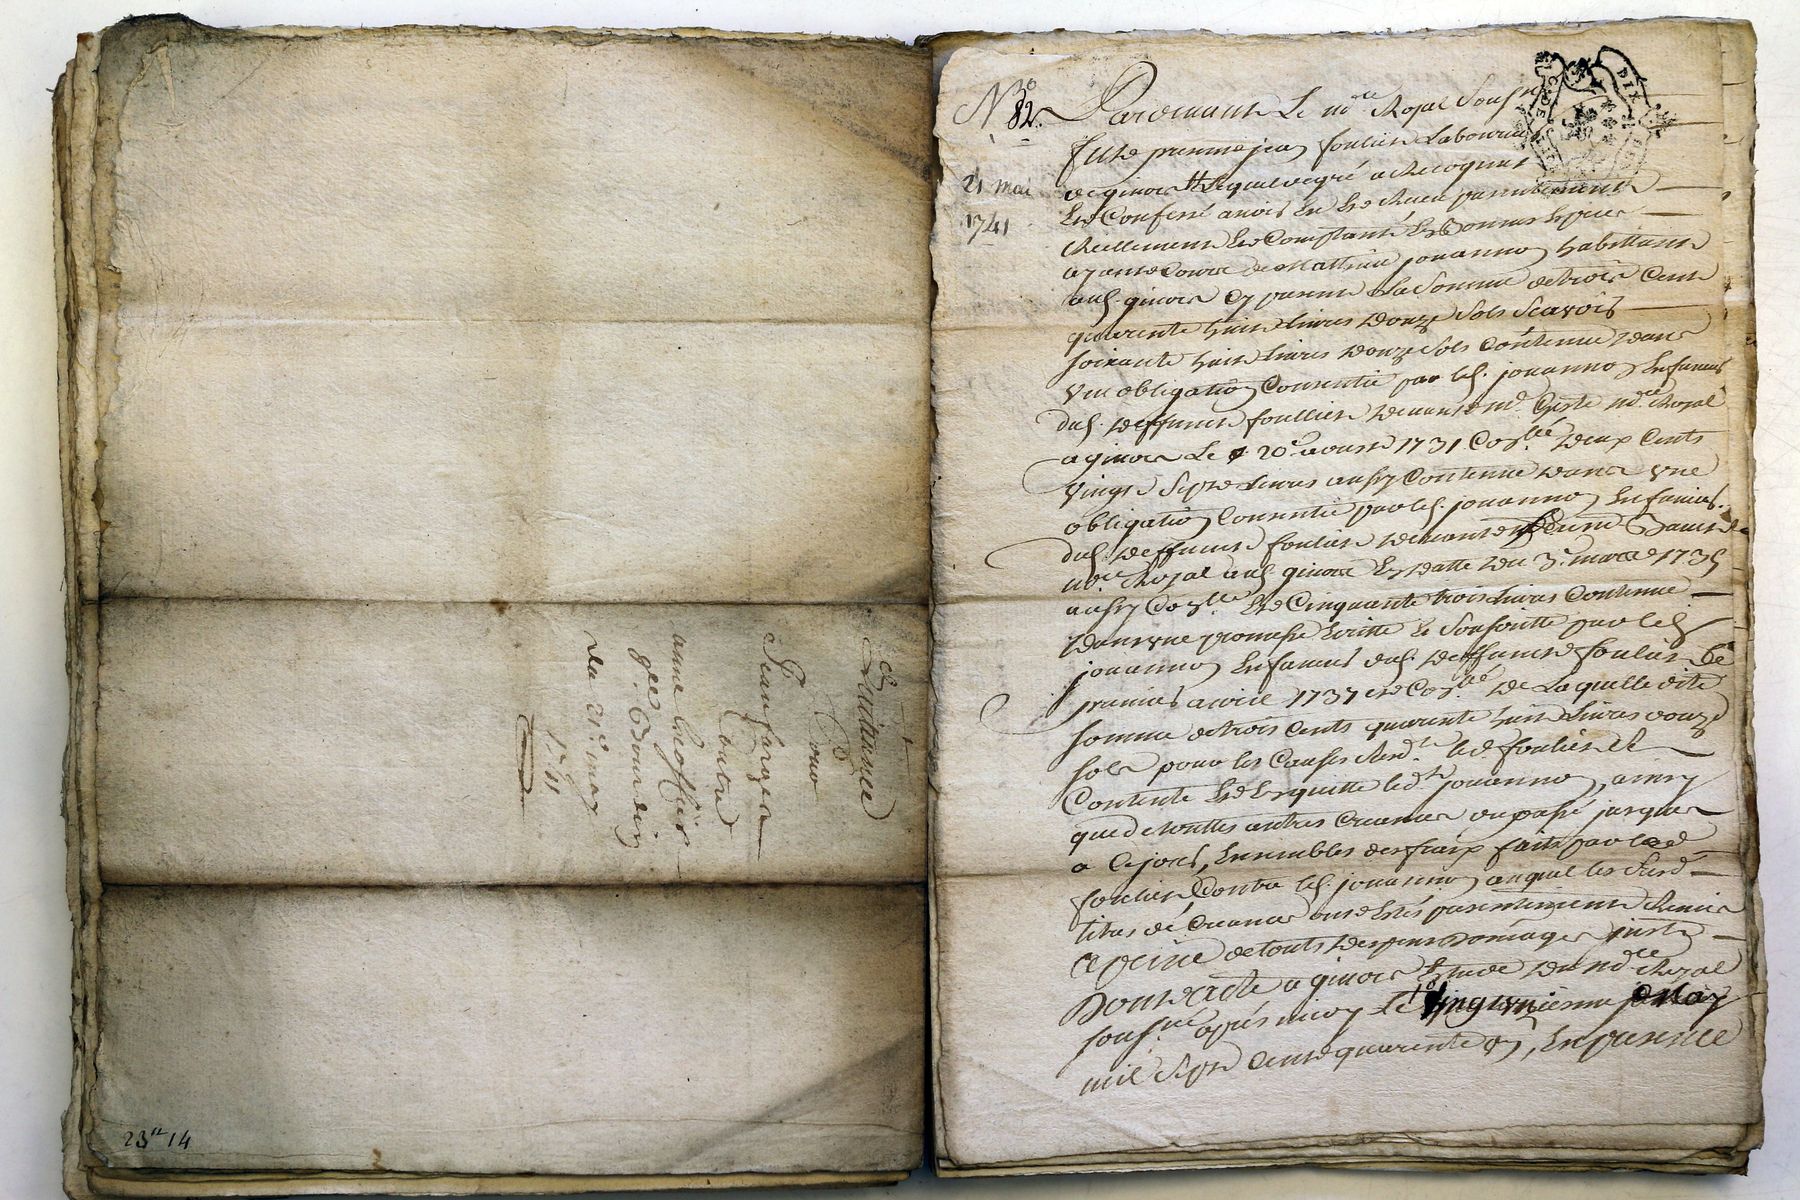 Quittance
Pour
Jean farges
Contre
anne
du 21e may
1741
23 14
No
82
21 mai
1741
DIX
Pardevant Le no.re Royal Souss.né
fust present jean foulier Laboureur
de ginoix Lequel de gré a Recognut
Et Confessé avoir Eu Et Receu presentement
Reellement Et Comptant En bonnes Espices
ayant Cours de Mathieu jouanno habittant
aud. ginoix Cy present La Somme de trois Cent
quarente huit Livres douze Sols Scavoir
soixante huit Livres douze Sols Contenue dans
Une obligation Consentie par led. jouanno En faveur
dud. deffunt foullier devant no.re Royal
a ginoix Le 20e aoust 1731 Con.llé deux Cents
Vingt Sept Livres aussy Contenue dans Une
obligation Consentie par led. jouanno En faveur
dud. deffunt foulier devant
no.re Royal aud. ginoix En datte du 3e mars 1735
aussy Con.llé Et Cinquante trois Livres Contenue
dans une promesse Ecritte Et Sousscritte par led.
jouanno En faveur dud. deffunt foulier Le
premier avril 1737 Con.llé de Laquelle dite
somme de trois Cents quarente huit Livres douze
sols pour les Causes Susd.tes led. foulier Se
Contente Et En quitte led.t jouanno, ainsy
que de touttes autres Creances du passé jusques
a Ce jour, Ensembles des fraix faits par led.
foulier Contre led. jouanno auquel les Susd.
titres de Creances ont Estés presentement Remis
a peine de touts despens domages jnts
Dont acte a ginoix Etude du no.re Royal
souss.né apres midy Le Vingt unieme May
mil Sept Cent quarente un, En presence